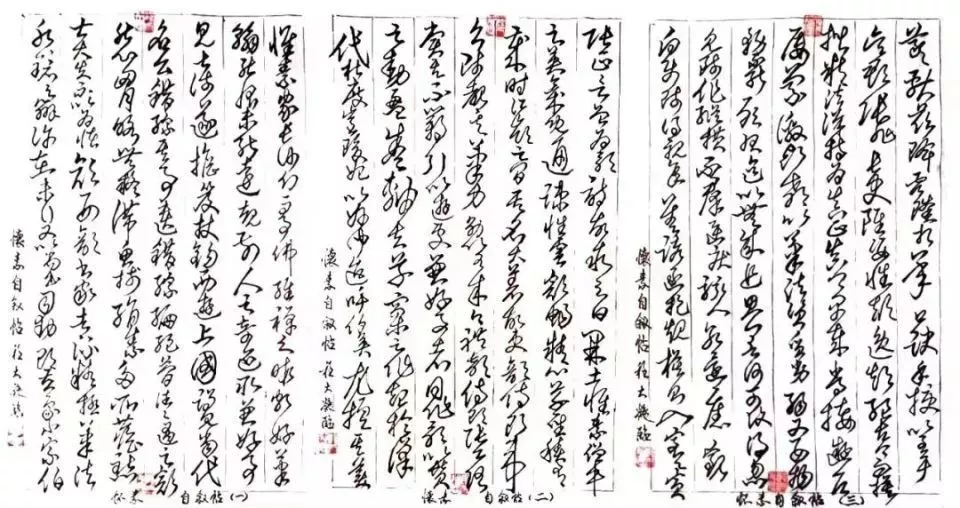 懷素家長沙幼而事佛經禪之暇頗好筆
翰然恨未能遠覩前人之奇迹所
見甚淺遂擔笈杖錫西遊上國謁見當代
名公錯綜其事遺編絕簡往往遇之豁
然心胸略無疑滯魚牋絹素多所塵點
士大夫不以為怪焉顏刑部書家者流精極筆法
水鏡之辨許在末行又以尚書司勛郎盧象小宗伯
懷素自叙帖
怀素自叙帖(一)
張正言曾為歌詩故敘之曰開士懷素僧中
之英氣概通疎性靈豁暢精心草聖積有
歲時江嶺之間其名大著故吏部侍郎韋
公陟覩其筆力勗以有成今禮部侍郎張公謂
賞其不羈引以遊處兼好事者同作歌以贊
之動盈卷軸夫草稾之作起於漢
代杜度崔瑗始以妙聞迨乎伯英尤擅其美
懷素自叙帖
怀素自叙帖(二)
羲獻茲降虞陸相承口訣手授以至于
吳郡張旭長史雖姿性顛逸超絕古今而模
楷精法詳特為真正真卿早歲常接遊居
屢蒙激昂教以筆法資質劣弱又嬰物
務不能懇習迄以無成追思一言何可復得忽
見師作縱橫不群迅疾駭人若還舊觀
向使師得親承善誘函挹規模則入室之賓
懷素自叙帖
怀素自叙帖(三)